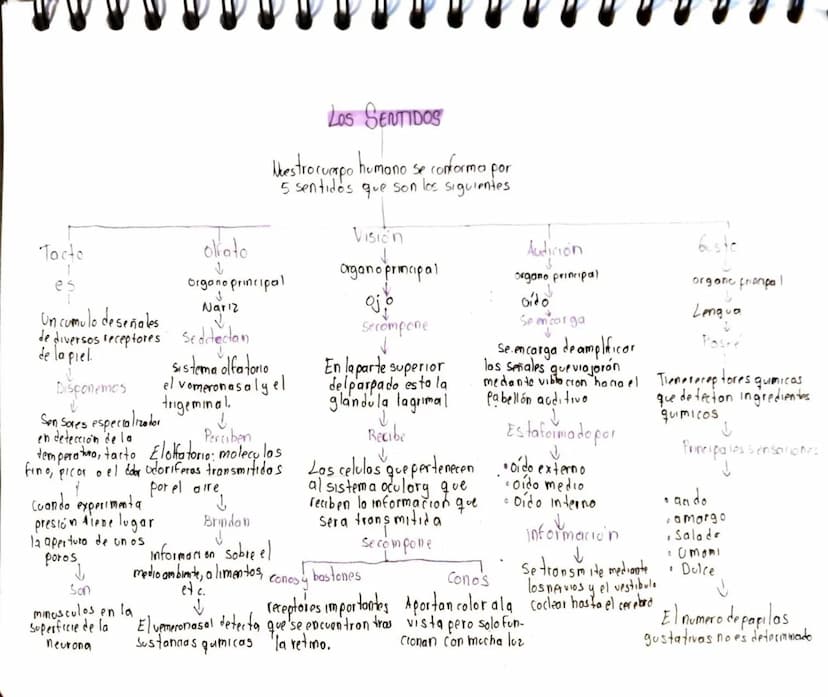 Los SENTIDOS
Nuestro cuerpo humano se conforma por
5 sentidos que son los siguientes
Tacto
es
Un cumulo de señales
de diversos receptores
de la piel.
Disponemos
Sensores especializador
en detección de la
temperatura, tacto
fino, picor o el
Cuando experimenta
presión tiene lugar
la apertura de unos
poros
Son
minusculos en la
superficie de la
neurona
Olfato
organo principal
Nariz
Se detectan
Sistema olfatorio
el vomeronasal y el
trigeminal.
Perciben
El olfatorio: moleculas
odoriferas transmitidas
por el aire
Brindan
Informacion sobre el
medio ambiente, alimentos,
etc.
El vemeronasal detecta
sustancias quimicas
Visión
organo principal
Ojo
Se compone
En la parte superior
del parpado esta la
glándula lagrimal
Recibe
Las celulas que pertenecen
al sistema ocular y que
reciben la informacion que
sera transmitida
Se compone
conos y bastones
receptores importantes
que se encuentran tras
la retina.
Conos
Aportan color a la
vista pero solo fun-
cionan con mucha luz
Audición
organo principal
oído
Se encarga
Se encarga de amplificar
las señales que viajarón
mediante vibración hacia el
Pabellón auditivo
Esta formado por
• Oído externo
• Oído medio
• Oído Interno
Información
Se transmite mediante
los nervios y el vestibulo
coclear hasta el cerebro
Gusto
organo prienpal
Lengua
Posee
Tiene receptores quimicas
que detectan ingredientes
quimicos
Principales sensaciones
• acido
• amargo
• Salado
• Umami
• Dulce
El numero de papilas
gustativas no es determinado